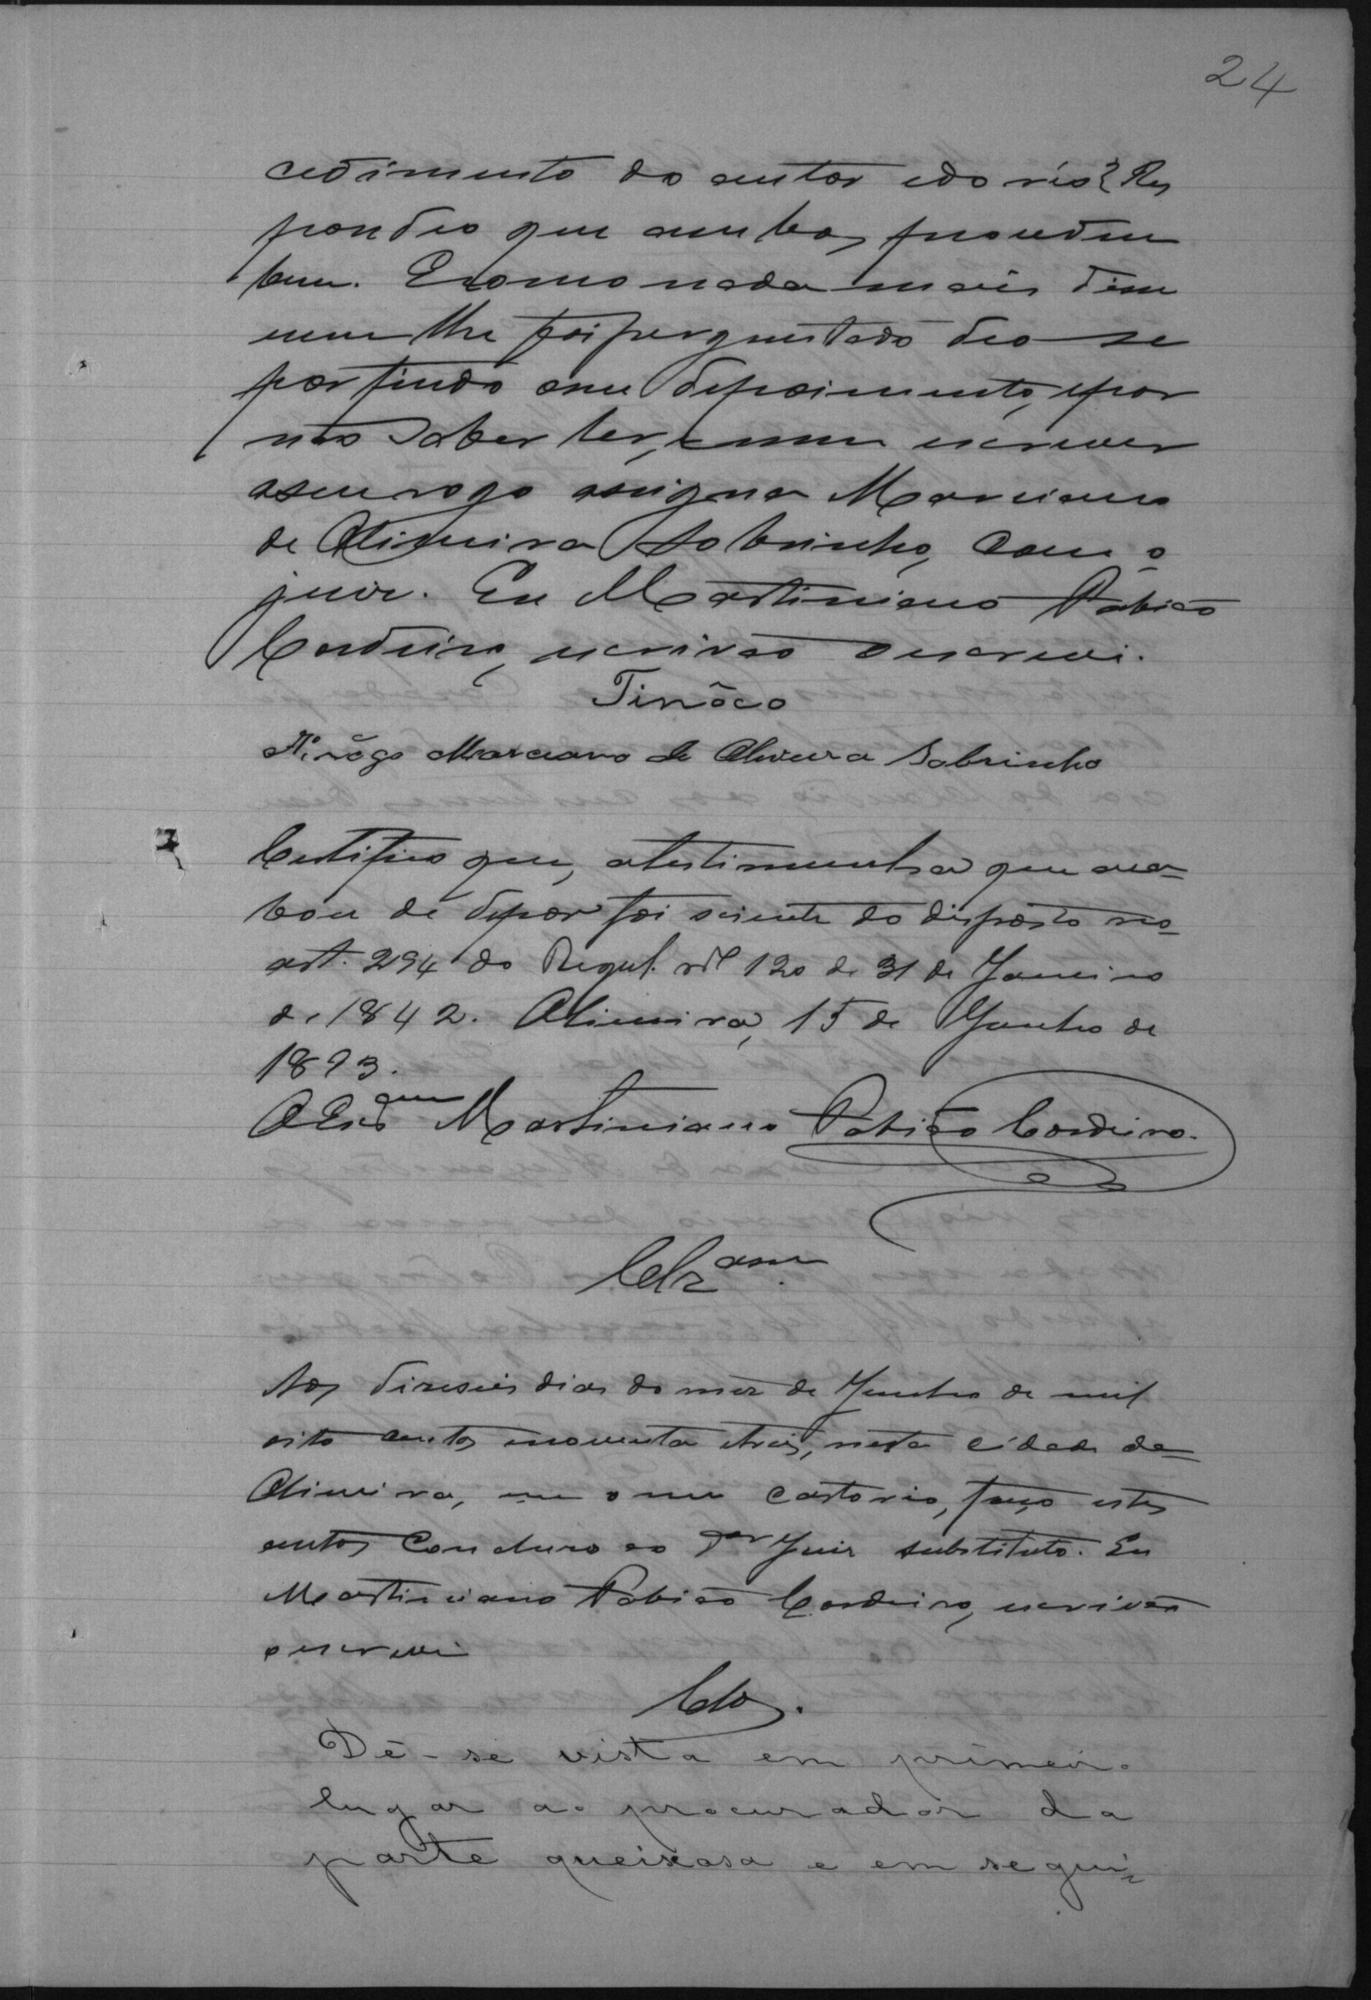 24
cedimento do autor e do réo? Res
pondeo que ambos procedem
bem. E como nada mais disse
nem lhe foi perguntado deo-se
por findo o seu depoimento, e por
não saber ler, e nem escrever
a seu rogo assigna Marciano
de Oliveira Sobrinho, com o
juiz. Eu Martiniano Fabião
Cordeiro, escrivão o escrevi.
Tinôco
A rôgo Marciano de Oliveira Sobrinho
Certifico que, a testimunha que aca-
bou de depor foi sciente do disposto no
art. 294 do Regul. nº 120 de 31 de Janeiro
de 1842. Oliveira, 15 de Junho de
1893.
O Esc^am Martiniano Fabião Cordeiro.
Clz^am.
Aos diseseis dias do mez de Junho de mil
oito centos e noventa e treis, nesta cidade de
Oliveira, em o meu cartorio, faço estes
autos Concluso ao D^or Juiz substituto. Eu
Martiniano Fabião Cordeiro, escrivão
o escrevi
Clos.
Dê-se vista em primeiro
lugar ao procurador da
parte queixosa e em segui-